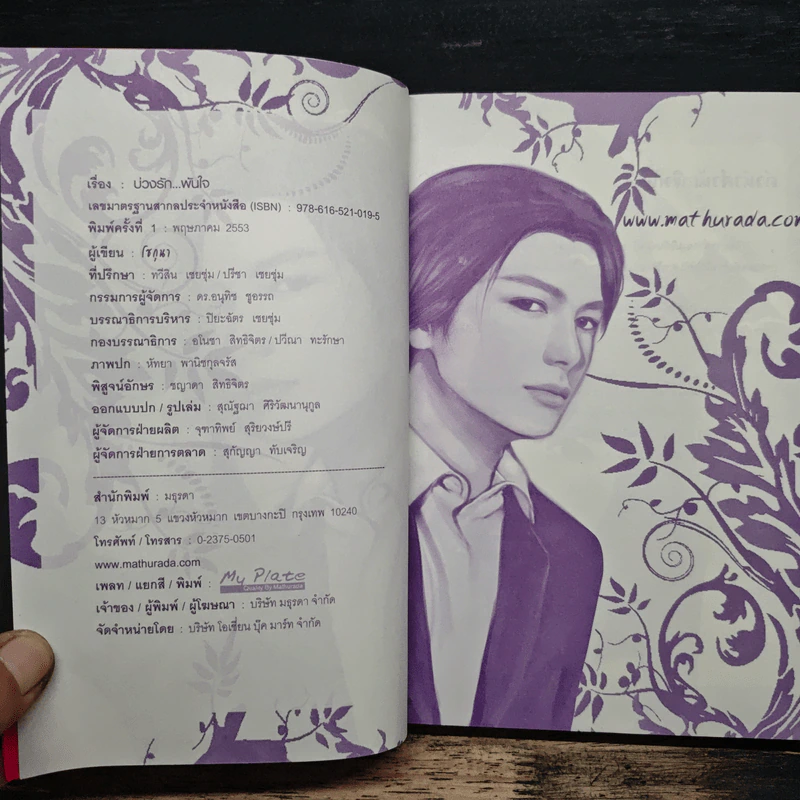 เรื่อง : บ่วงรัก...พันใจ
เลขมาตรฐานสากลประจำหนังสือ (ISBN) : 978-616-521-019-5
พิมพ์ครั้งที่ 1 : พฤษภาคม 2553
ผู้เขียน : โชกุนา
ที่ปรึกษา : ทวีสิน เชยชุ่ม / ปรีชา เชยชุ่ม
กรรมการผู้จัดการ : ดร.อนุทิช ชูอรรถ
บรรณาธิการบริหาร : ปิยะฉัตร เชยชุ่ม
กองบรรณาธิการ : อโนชา สิทธิจิตร / ปวีณา ทะรักษา
ภาพปก : หัทยา พานิชกุลจรัส
พิสูจน์อักษร : ชญาดา สิทธิจิตร
ออกแบบปก / รูปเล่ม : สุณัฐฌา ศิริวัฒนานุกูล
ผู้จัดการฝ่ายผลิต : จุฑาทิพย์ สุริยวงษ์ปรี
ผู้จัดการฝ่ายการตลาด : สุกัญญา ทับเจริญ
สำนักพิมพ์ : มธุรดา
13 หัวหมาก 5 แขวงหัวหมาก เขตบางกะปิ กรุงเทพ 10240
โทรศัพท์ / โทรสาร : 0-2375-0501
www.mathurada.com
เพลท / แยกสี / พิมพ์ : My Plate
Quality By Mathurada
เจ้าของ / ผู้พิมพ์ / ผู้โฆษณา : บริษัท มธุรดา จำกัด
จัดจำหน่ายโดย : บริษัท โอเชี่ยน บุ๊ค มาร์ท จำกัด
www.mathurada.com